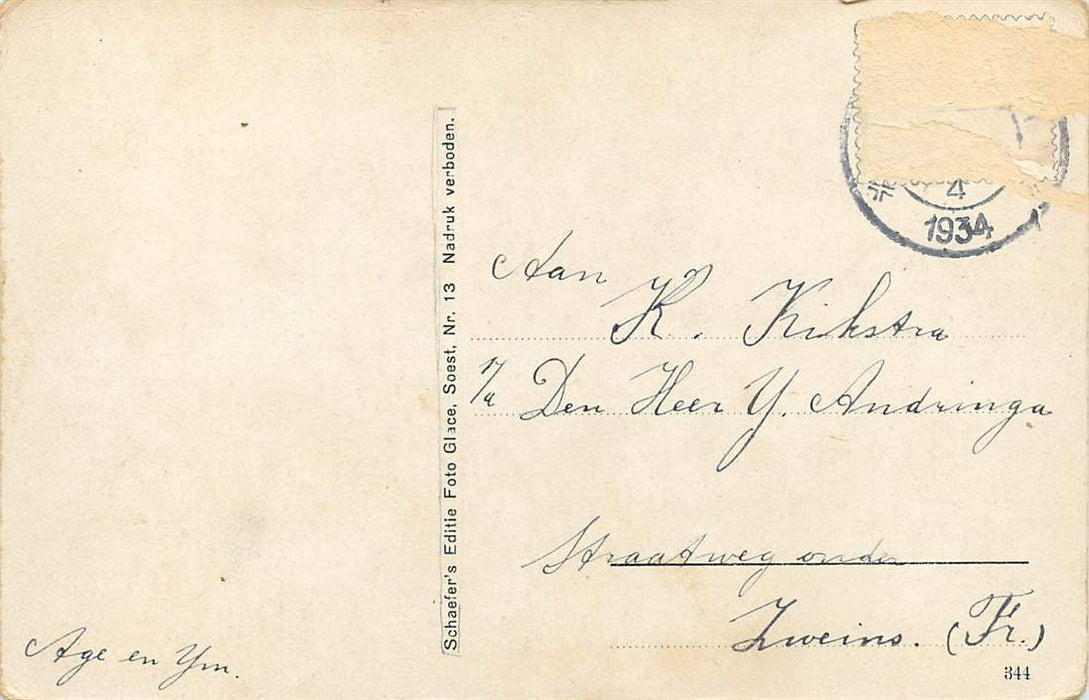 4
1934
Aan
K. Kikstra
p/a Den Heer Y. Andringa
Straatweg onder
Zweins. (Fr.)
344
Schaefer's Editie Foto Glace, Soest, Nr. 13 Nadruk verboden.
Age en Ym.